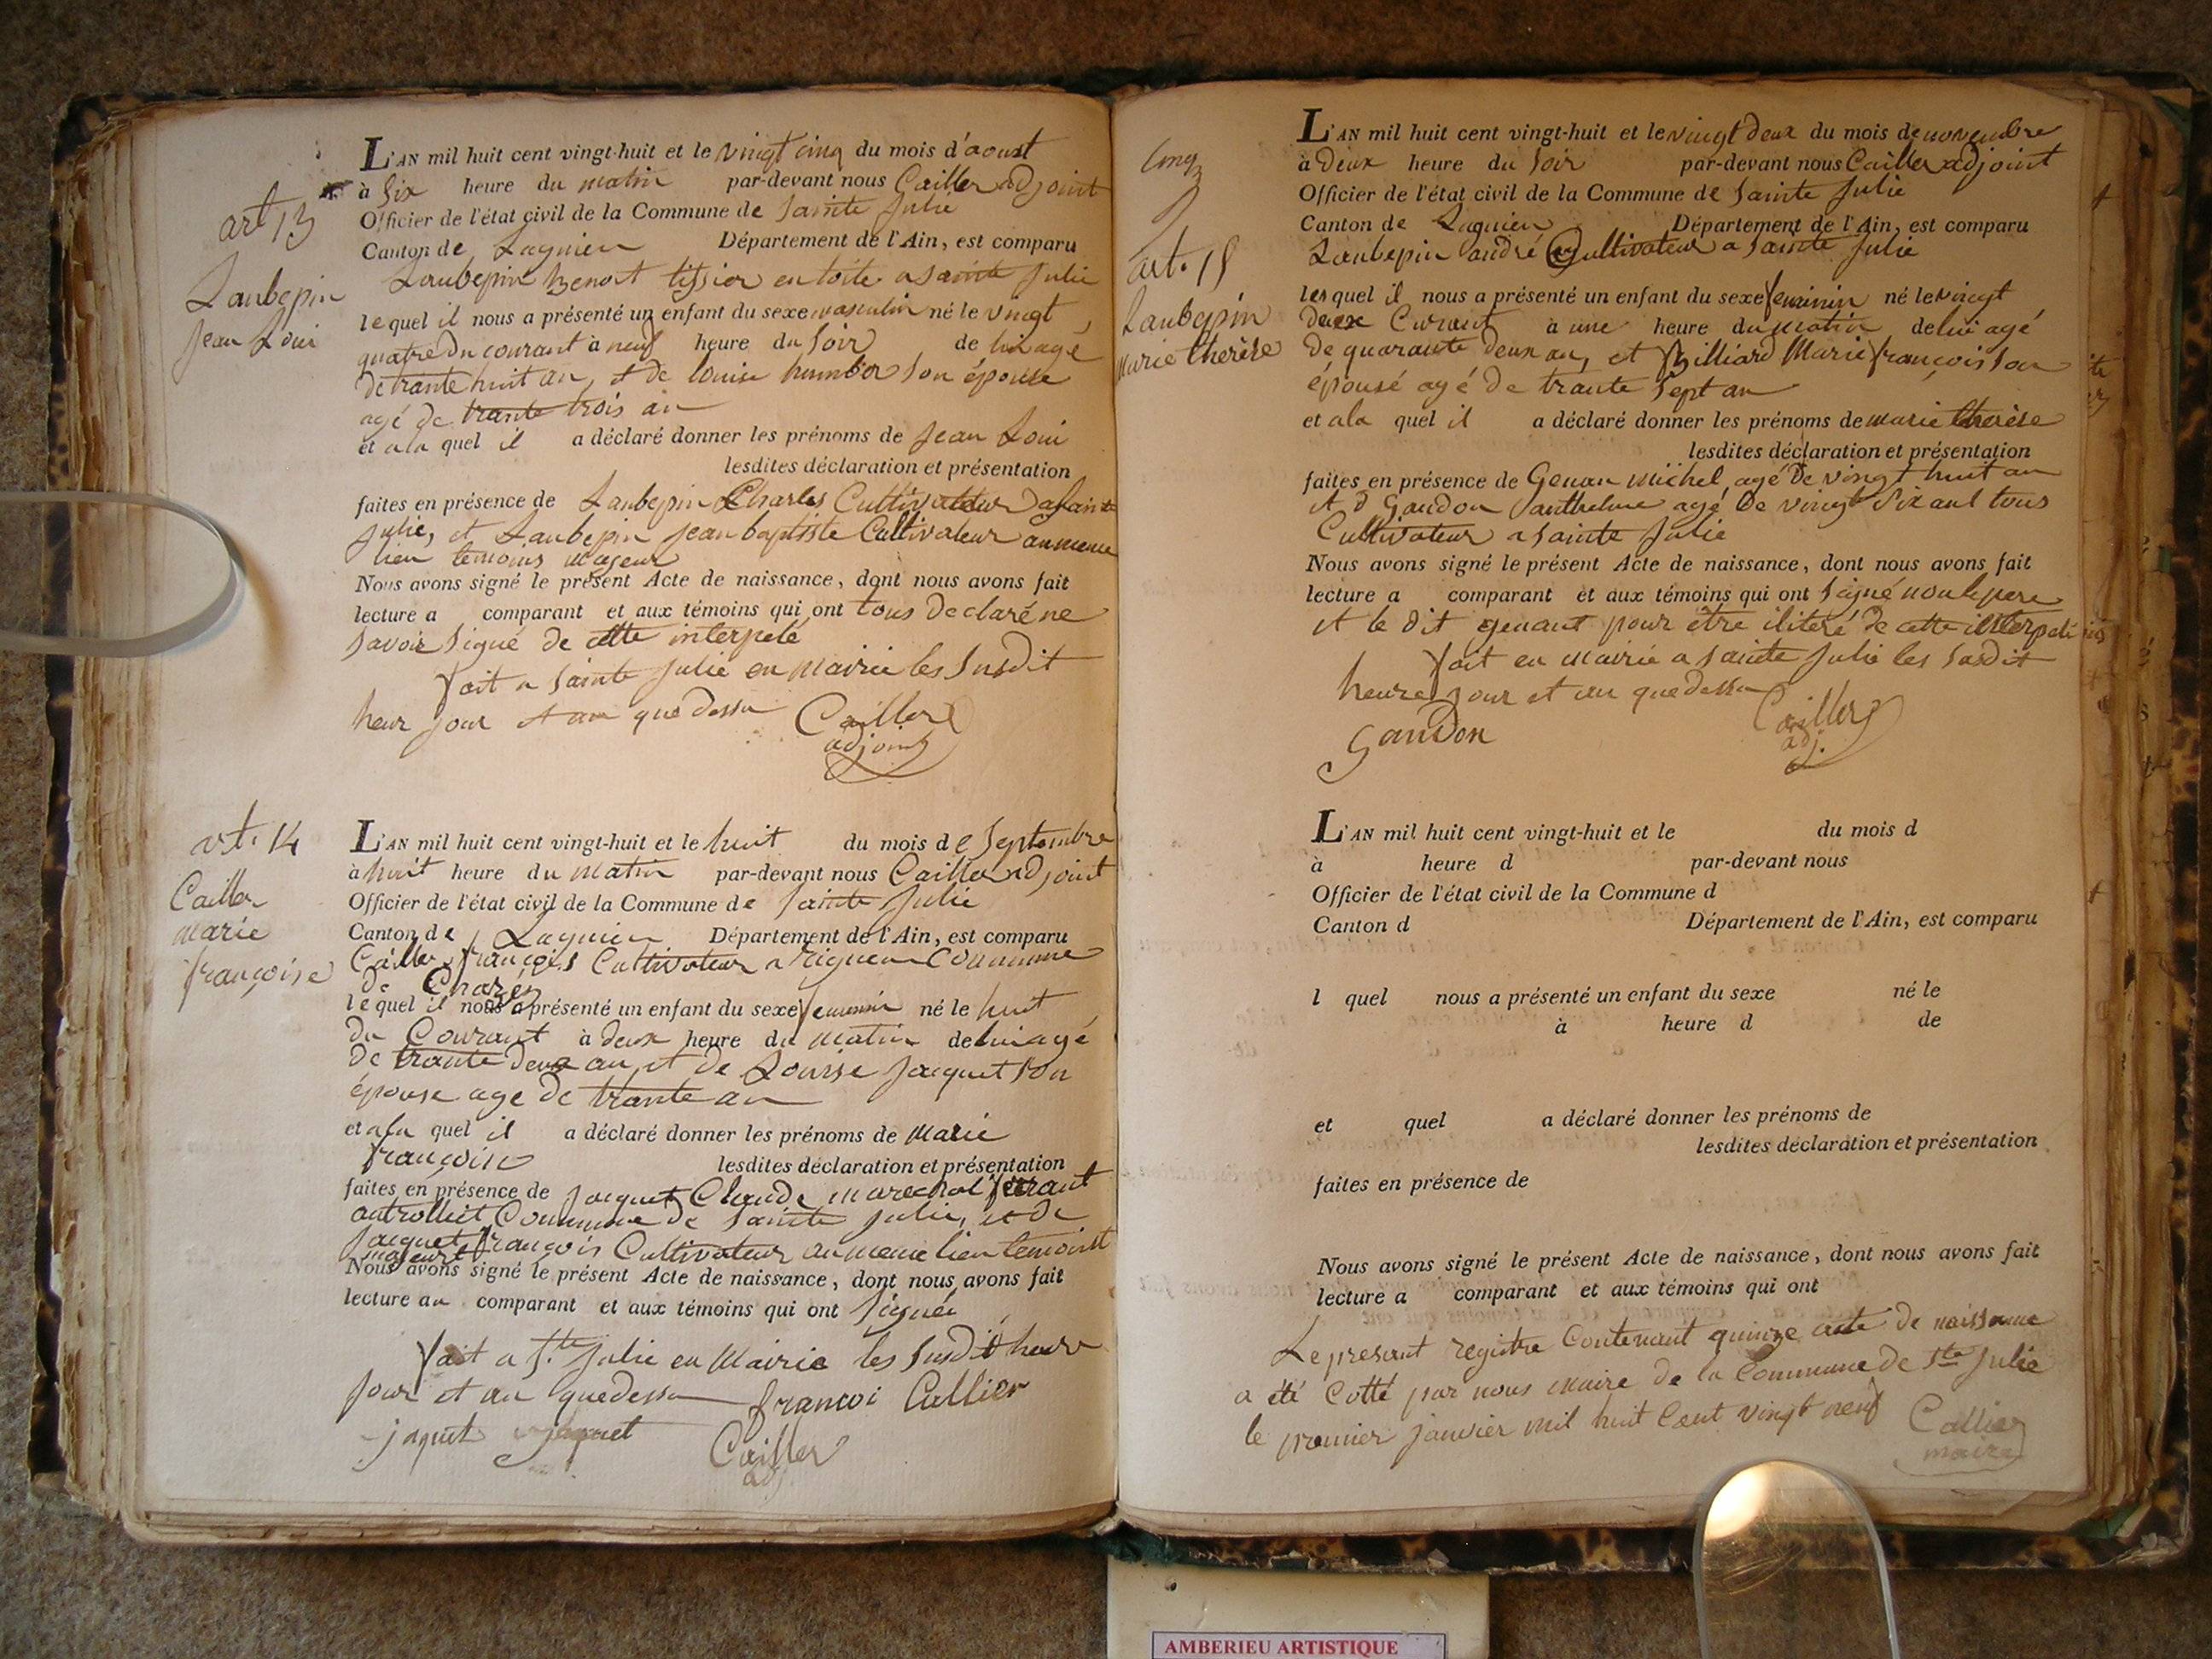 art 13
Laubepin
Jean Loui
L'AN mil huit cent vingt-huit et le vingt cinq du mois d'aoust
à Six heure du matin par-devant nous Cailler adjoint
Officier de l'état civil de la Commune de Sainte Julie
Canton de Lagnieu Département de l'Ain, est comparu
Laubepin Benoit tissier en toile a Sainte Julie
lequel il nous a présenté un enfant du sexe masculin né le vingt
quatre du courant à neuf heure du Soir de lui agé
de trante huit an, et de louise humber Son épouse
agé de trante trois an
et a la quel il a déclaré donner les prénoms de Jean Loui
lesdites déclaration et présentation
faites en présence de Laubepin Charles Cultivateur a Sainte
Julie, et Laubepin Jean baptiste Cultivateur au meme
lieu temoins majeur
Nous avons signé le présent Acte de naissance, dont nous avons fait
lecture a comparant et aux témoins qui ont tous declaré ne
Savoir Signé de cette interpelé
fait a Sainte Julie en Mairie les Susdit
heur jour et an que dessu Cailler
adjoint
art. 14
Cailler
marie
françoise
L'AN mil huit cent vingt-huit et le huit du mois de Septembre
à huit heure du matin par-devant nous Cailler adjoint
Officier de l'état civil de la Commune de Sainte Julie
Canton de Lagnieu Département de l'Ain, est comparu
Cailler françois Cultivateur a Commune
de Charey
lequel il nous a présenté un enfant du sexe feminin né le huit
du Courant à deux heure du matin de lui agé
de trante deux an, et de Louise Jacquet Son
épouse age de trante an
et a la quel il a déclaré donner les prénoms de Marie
françoise lesdites déclaration et présentation
faites en présence de Jacquet Claude marechal ferrant
Commune de Sainte Julie, et de
Jacquet françois Cultivateur au meme lieu temoins
majeur
Nous avons signé le présent Acte de naissance, dont nous avons fait
lecture au comparant et aux témoins qui ont Signé
fait a Ste Julie en Mairie les Susdit heure
jour et an que dessu francoi Callier
jaquet jaquet Cailler
adj
Cinq
art. 15
Laubepin
Marie therèse
L'AN mil huit cent vingt-huit et le vingt deux du mois de novembre
à Deux heure du Soir par-devant nous Cailler adjoint
Officier de l'état civil de la Commune de Sainte Julie
Canton de Lagnieu Département de l'Ain, est comparu
Laubepin andré Cultivateur a Sainte Julie
lesquel il nous a présenté un enfant du sexe feminin né le vingt
deux Curant à une heure du matin de lui agé
de quarante deux an, et Billiard Marie françois Son
épousé agé de trante Sept an
et a la quel il a déclaré donner les prénoms de marie therèse
lesdites déclaration et présentation
faites en présence de Genan michel, agé de vingt huit an
et d Gaudon anthelme agé de vingt Six ant tous
Cultivateur a Sainte Julie
Nous avons signé le présent Acte de naissance, dont nous avons fait
lecture a comparant et aux témoins qui ont Signé non le pere
et le dit genant pour être ilitéré de cette
fait en mairie a Sainte Julie les Susdit
heure jour et an que dessu Cailler
adj.
Gaudon
L'AN mil huit cent vingt-huit et le du mois d
à heure d par-devant nous
Officier de l'état civil de la Commune d
Canton d Département de l'Ain, est comparu
l quel nous a présenté un enfant du sexe né le
à heure d de
et quel a déclaré donner les prénoms de
lesdites déclaration et présentation
faites en présence de
Nous avons signé le présent Acte de naissance, dont nous avons fait
lecture a comparant et aux témoins qui ont
Le present registre Contenant quinze acte de naissance
a été Cotté par nous maire de la Commune de Ste Julie
le premier janvier mil huit Cent vingt neuf Callier
maire
AMBERIEU ARTISTIQUE